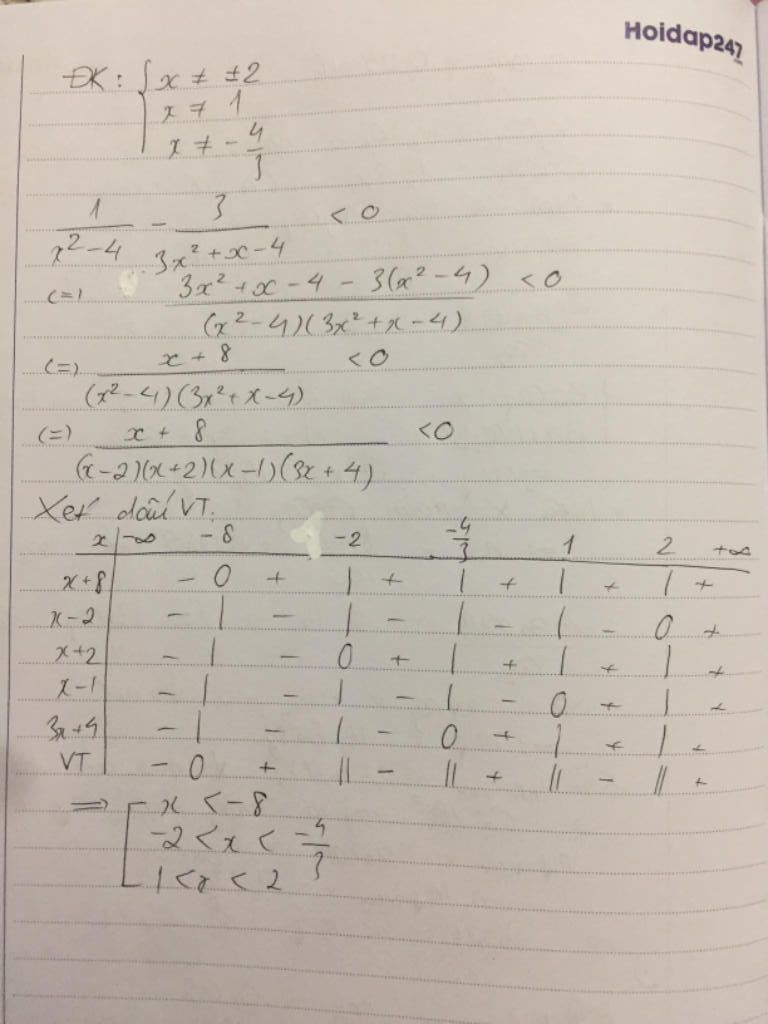 Hoidap247
ĐK: { x ≠ ±2
x ≠ 1
x ≠ -4/3
1/(x²-4) - 3/(3x²+x-4) < 0
(=) (3x²+x-4-3(x²-4))/((x²-4)(3x²+x-4)) < 0
(=) (x+8)/((x²-4)(3x²+x-4)) < 0
(=) (x+8)/((x-2)(x+2)(x-1)(3x+4)) < 0
Xét dấu VT:
x | -∞ -8 -2 -4/3 1 2 +∞
x+8 | - 0 + | + | + | + | +
x-2 | - | - | - | - | - 0 +
x+2 | - | - 0 + | + | + | +
x-1 | - | - | - | - 0 + | +
3x+4 | - | - | - 0 + | + | +
VT | - 0 + || - || + || - || +
⇒ [ x < -8
-2 < x < -4/3
1 < x < 2